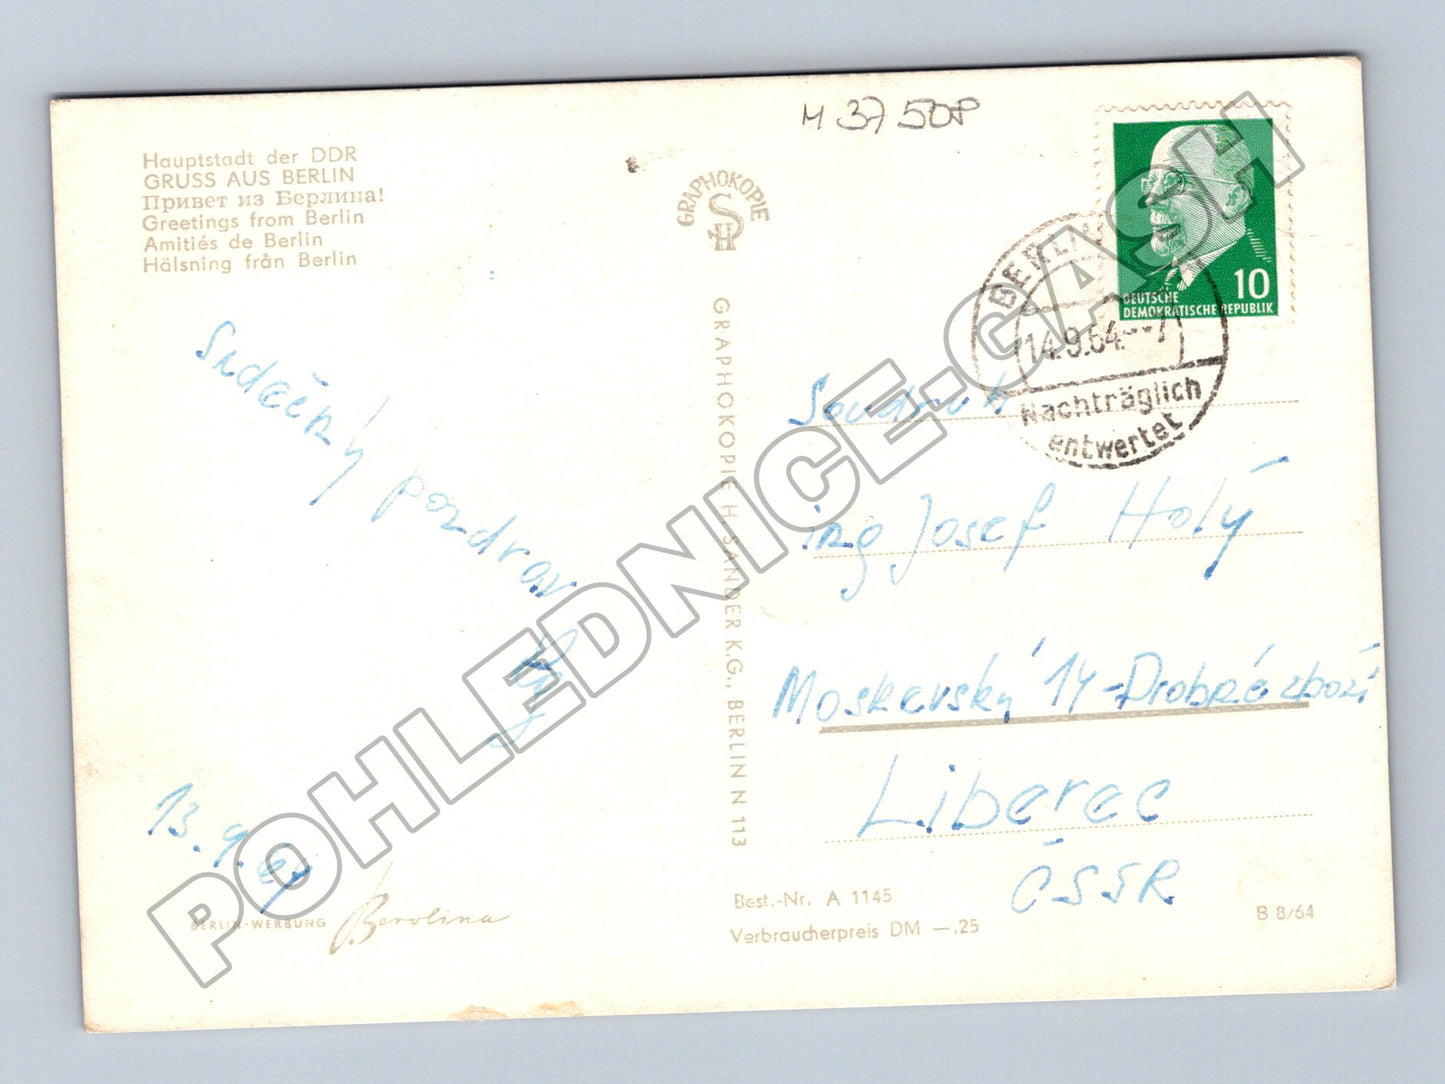 M 37 50P
Hauptstadt der DDR
GRUSS AUS BERLIN
Привет из Берлина!
Greetings from Berlin
Amitiés de Berlin
Hälsning från Berlin
GRAPHOKOPIE
H S
GRAPHOKOPIE H. SANDER K.G., BERLIN N 113
10
DEUTSCHE
DEMOKRATISCHE REPUBLIK
BERLIN
14.9.64.--7
Nachträglich
entwertet
Srdečný pozdrav
13. 9. 64
Soudruh
ing Josef Holý
Moskevský 14 - Dobré zboží
Liberec
ČSSR
BERLIN-WERBUNG Berolina
Best.-Nr. A 1145
Verbraucherpreis DM —,25
B 8/64
POHLEDNICE-GASH